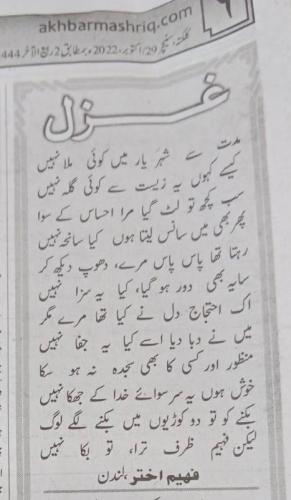 ۶
akhbarmashriq.com
کلکتہ، سنیچر 29/اکتوبر، 2022ء بمطابق 2 ربیع الآخر 1444
غزل
مدت سے شہر یار میں کوئی ملا نہیں
کیسے کہوں یہ زیست سے کوئی گلہ نہیں
سب کچھ تو لٹ گیا مرا احساس کے سوا
پھر بھی میں سانس لیتا ہوں کیا سانحہ نہیں
رہتا تھا پاس پاس مرے، دھوپ دیکھ کر
سایہ بھی دور ہو گیا، کیا یہ سزا نہیں
اک احتجاج دل نے کیا تھا مرے مگر
میں نے دبا دیا اسے کیا یہ جفا نہیں
منظور اور کسی کا بھی سجدہ نہ ہو سکا
خوش ہوں یہ سر سوائے خدا کے جھکا نہیں
بکنے کو تو دو کوڑیوں میں بکنے لگے لوگ
لیکن فہیم ظرف ترا، تو بکا نہیں
فہیم اختر، لندن